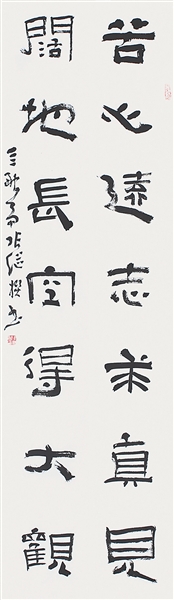 苦心遠志求真見
闊地長空得大觀